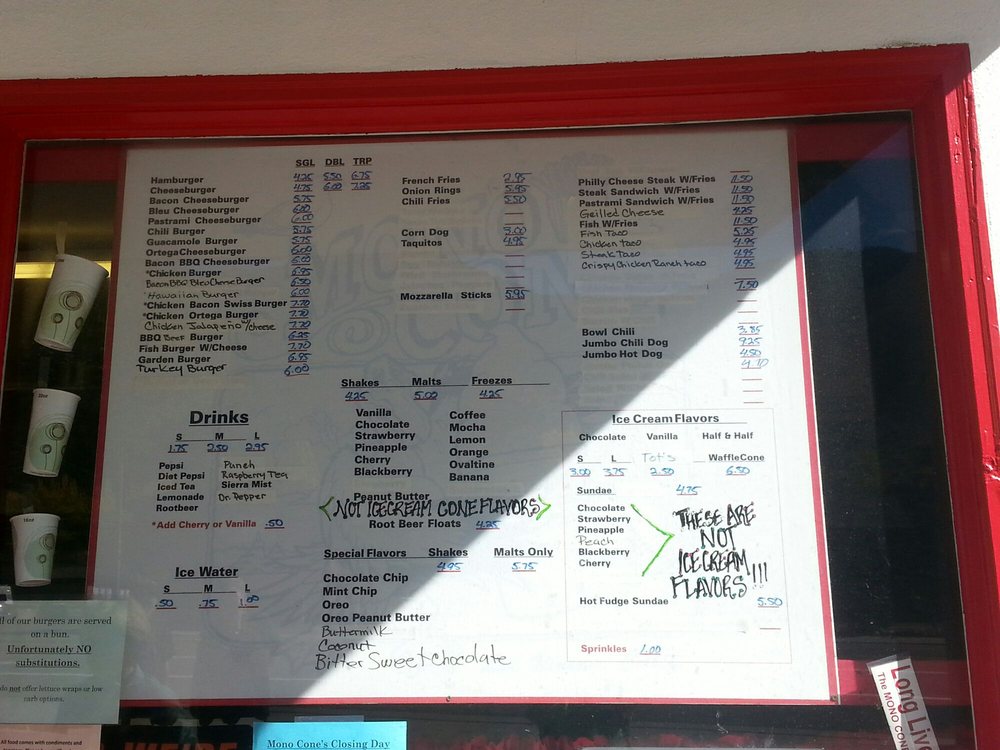 SGL DBL TRP
Hamburger 4.25 5.50 6.75
Cheeseburger 4.75 6.00 7.25
Bacon Cheeseburger 5.75
Bleu Cheeseburger 6.00
Pastrami Cheeseburger 6.00
Chili Burger 5.75
Guacamole Burger 5.75
Ortega Cheeseburger 6.00
Bacon BBQ Cheeseburger 6.00
*Chicken Burger 6.95
Bacon BBQ Bleu Cheese Burger 6.50
Hawaiian Burger 6.00
*Chicken Bacon Swiss Burger 7.70
*Chicken Ortega Burger 7.20
Chicken Jalapeño w/cheese 7.20
BBQ Beef Burger 6.25
Fish Burger W/Cheese 7.70
Garden Burger 6.95
Turkey Burger 6.00
French Fries 2.95
Onion Rings 5.95
Chili Fries 5.50
Corn Dog 3.00
Taquitos 4.95
Mozzarella Sticks 5.95
Philly Cheese Steak W/Fries 11.50
Steak Sandwich W/Fries 11.50
Pastrami Sandwich W/Fries 11.50
Grilled Cheese 4.25
Fish W/Fries 11.50
Fish Taco 5.25
Chicken taco 4.95
Steak Taco 4.95
Crispy Chicken Ranch taco 4.95
7.50
Bowl Chili 3.85
Jumbo Chili Dog 9.25
Jumbo Hot Dog 4.50
Drinks
S M L
1.75 2.50 2.95
Pepsi Punch
Diet Pepsi Raspberry Tea
Iced Tea Sierra Mist
Lemonade Dr. Pepper
Rootbeer
*Add Cherry or Vanilla .50
Ice Water
S M L
.50 .75 1.00
Shakes Malts Freezes
4.25 5.02 4.25
Vanilla Coffee
Chocolate Mocha
Strawberry Lemon
Pineapple Orange
Cherry Ovaltine
Blackberry Banana
Peanut Butter
NOT ICECREAM CONE FLAVORS
Root Beer Floats 4.25
Special Flavors Shakes Malts Only
4.95 5.75
Chocolate Chip
Mint Chip
Oreo
Oreo Peanut Butter
Buttermilk
Coconut
Bitter Sweet Chocolate
Ice Cream Flavors
Chocolate Vanilla Half & Half
S L Tot's WaffleCone
3.00 3.75 2.50 6.50
Sundae 4.75
Chocolate
Strawberry
Pineapple
Peach
Blackberry
Cherry
THESE ARE
NOT
ICECREAM
FLAVORS!!!
Hot Fudge Sundae 5.50
Sprinkles 1.00
of our burgers are served
on a bun.
Unfortunately NO
substitutions.
do not offer lettuce wraps or low
carb options.
All food comes with condiments and
Mono Cone's Closing Day
Long Liv
The MONO CO
22oz
16oz